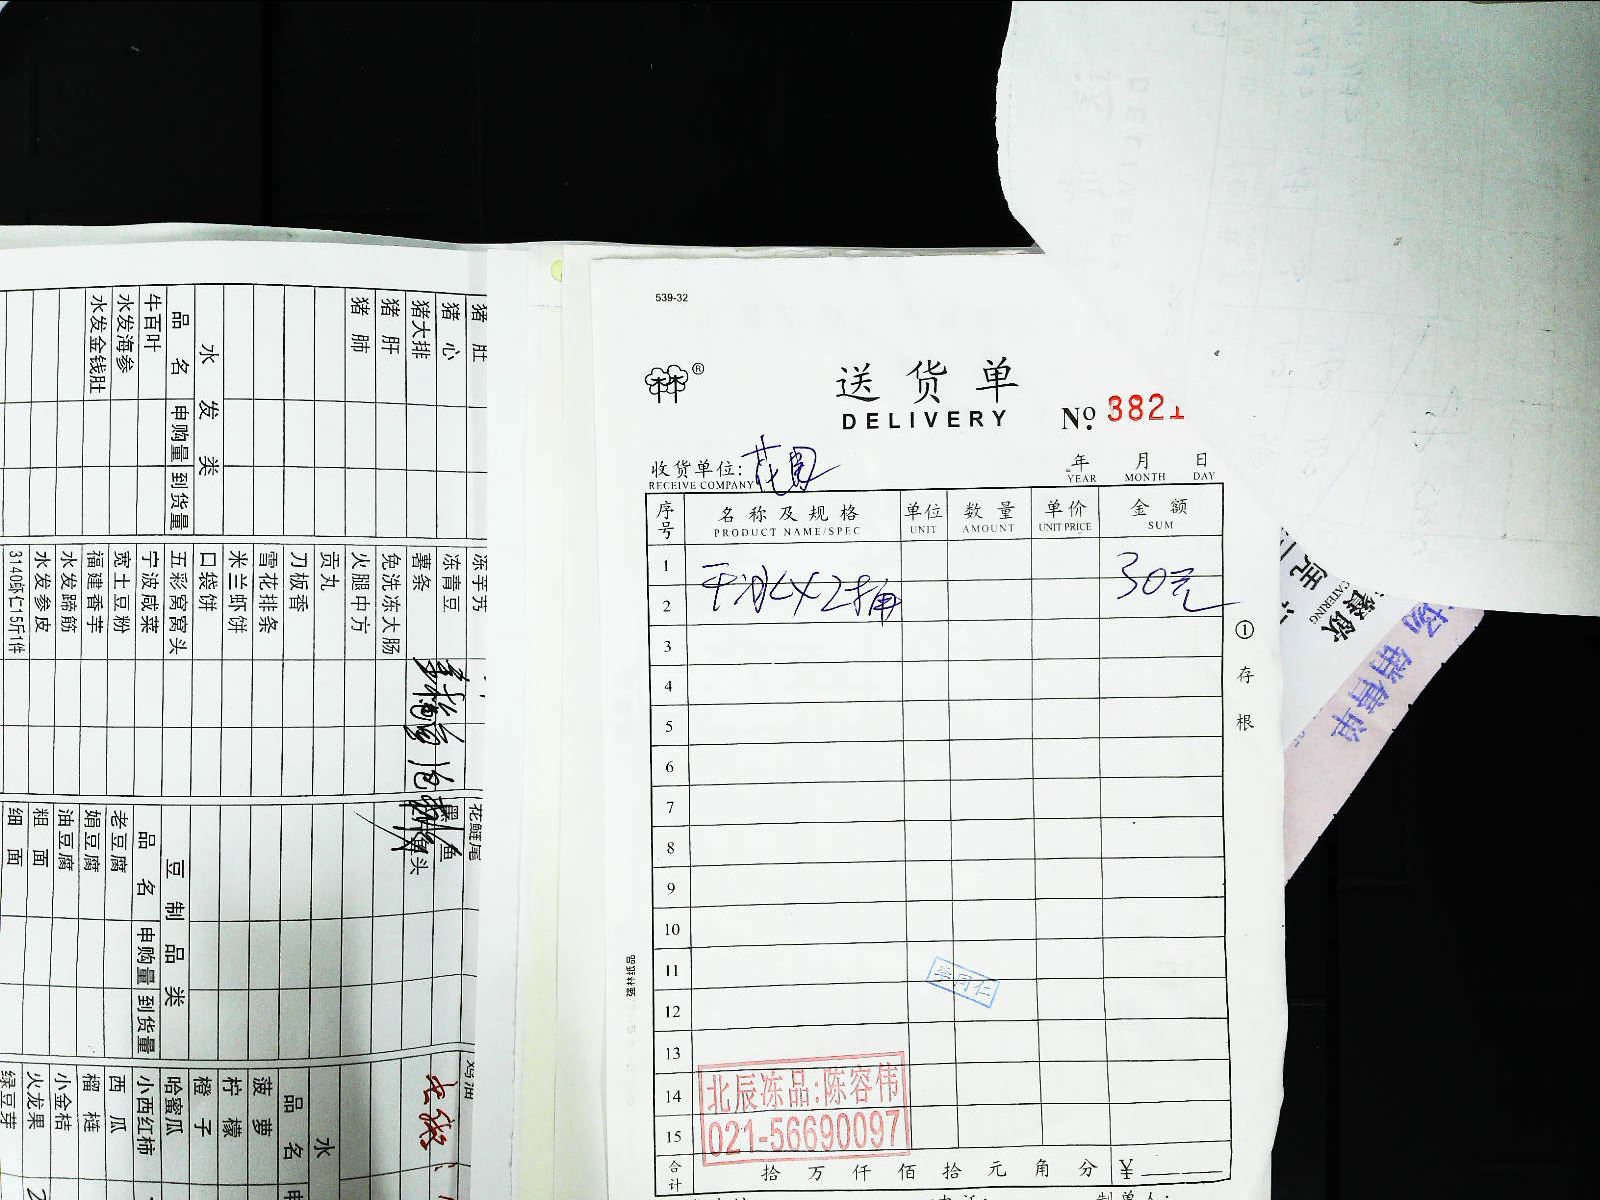 539-32
®
送货单
DELIVERY
№ 3821
收货单位: 花园
RECEIVE COMPANY
年 月 日
YEAR MONTH DAY
序号 名称及规格 单位 数量 单价 金额
PRODUCT NAME/SPEC UNIT AMOUNT UNIT PRICE SUM
1
干冰×2桶 30元
2
3
4
5
6
7
8
9
10
11
12
13
14
15
①存根
北辰冻品:陈容伟
021-56690097
合计 拾 万 仟 佰 拾 元 角 分 ¥
制单人:
强林纸品
CATERING
销售单
猪肚
猪心
猪大排
猪肝
猪肺
水发类
品名 申购量 到货量
牛百叶
水发海参
水发金钱肚
冻芋艿
冻青豆
薯条
免洗冻大肠
火腿中方
贡丸
刀板香
雪花排条
米兰虾饼
口袋饼
五彩窝窝头
宁波咸菜
宽土豆粉
福建香芋
水发蹄筋
水发参皮
3140虾仁15斤1件
花鲢尾
豆制品类
品名 申购量 到货量
老豆腐
娟豆腐
油豆腐
粗面
细面
鸡油
水
品名 申
菠萝
柠檬
橙子
哈蜜瓜
小西红柿
西瓜
榴梿
小金桔
火龙果
绿豆芽